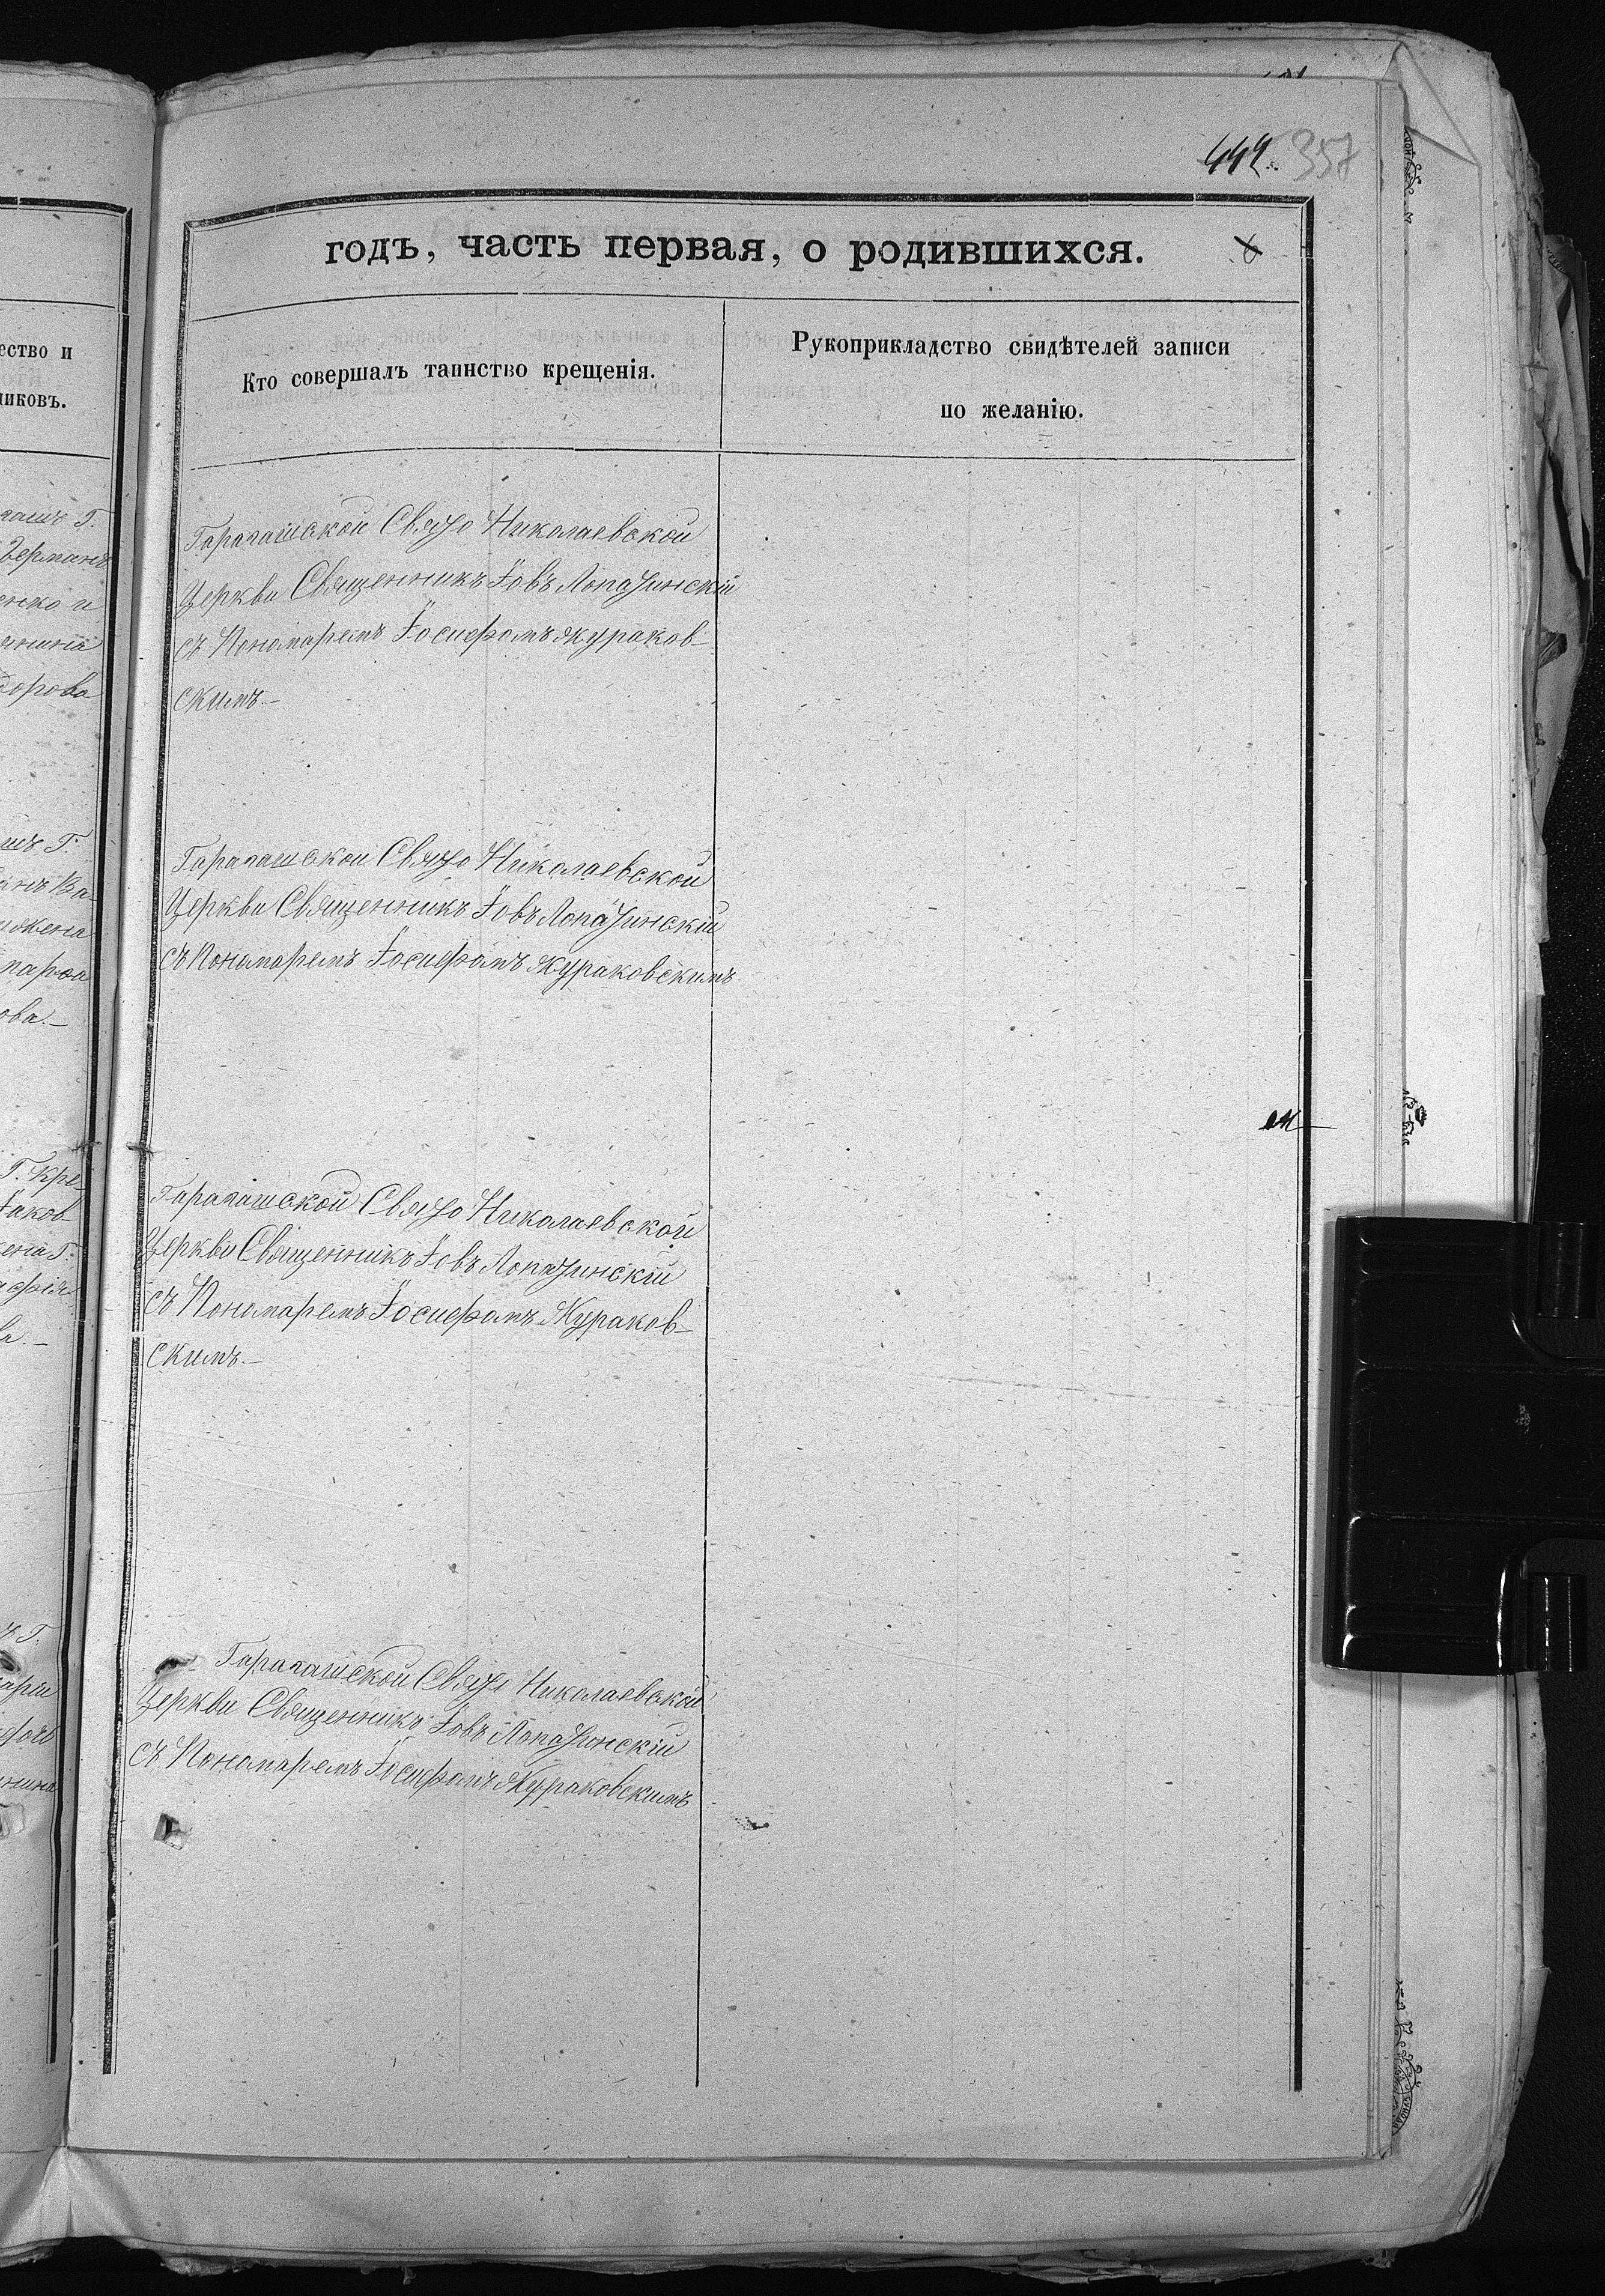 442. 357
годъ, часть первая, о родившихся.
Кто совершалъ таинство крещенія.
Рукоприкладство свидѣтелей записи
по желанію.
ество и
никовъ.
Гарапашской Свято Николаевской
Церкви Священникъ Іовъ Лопатинскій
съ Пономаремъ Іосифомъ Жураков-
скимъ.-
Гарапашской Свято Николаевской
Церкви Священникъ Іовъ Лопатинскій
съ Пономаремъ Іосифомъ Жураковскимъ
Гарапашской Свято Николаевской
Церкви Священникъ Іовъ Лопатинскій
съ Пономаремъ Іосифомъ Жураков-
скимъ.-
Гарапашской Свято Николаевской
Церкви Священникъ Іовъ Лопатинскій
съ Пономаремъ Іосифомъ Жураковскимъ